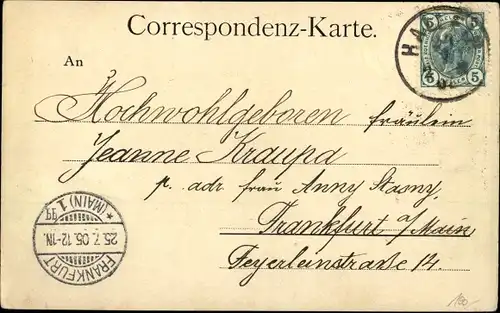 Correspondenz-Karte.
An
Hochwohlgeboren fräulein
Jeanne Kraupa
p. adr. frau Anny Stasny,
Frankfurt a/Main,
Feyerleinstraße 14.
5 5
5 5
HA
FRANKFURT
25.7.05.12-1N.
* (MAIN) 1 gg.